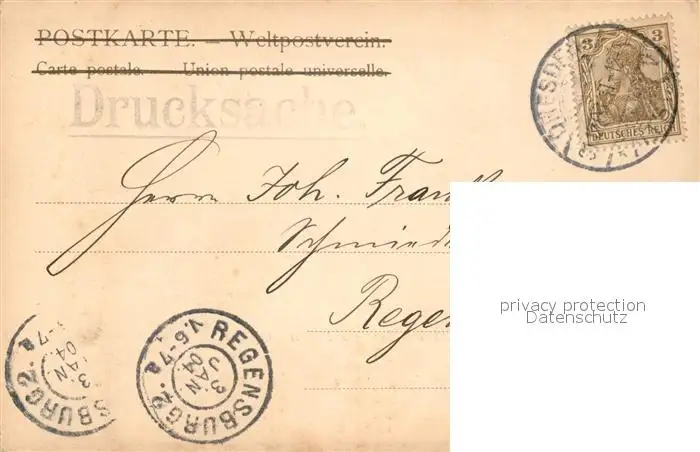 POSTKARTE. — Weltpostverein.
Carte postale. — Union postale universelle.
Drucksache.
3 3
DEUTSCHES REICH
DRESDEN
Herrn Joh. Fran
Schmied
Regen
privacy protection
Datenschutz
REGENSBURG 2.
V. 6-7a
3
JAN
04
SBURG 2.
-7a
3
AN
04